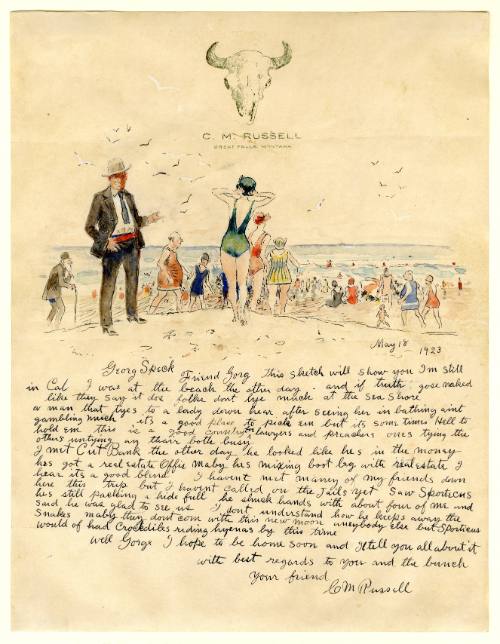 C. M. RUSSELL
GREAT FALLS, MONTANA
May 18 1923
Georg Speck
Friend Gorg this sketch will show you I'm still
in Cal I was at the beach the other day and if truth goes naked
like they say it dos folks dont lye much at the sea shore
a man that tyes to a lady down hear after seeing her in bathing aint
gambling much its a good place to pick em but its some times Hell to
hold em this is a good country for lawyers and preachers ones tying the
others untying an thair both busy
I met Cut Bank the other day he looked like hes in the money
hes got a real estate offis maby hes mixing boot leg with real estate I
hear its a good blend I havent met maney of my friends down
here this trip but I havent called on the Jails yet Saw Sporticus
hes still packing a hide full he shuck hands with about four of me and
said he was glad to see us I dont understand how he keeps away the
snakes mabby they dont com with this new moon aneybody else but Sporticus
would of had Crockdiles riding hyenas by this time
well Gorge I hope to be home soon and Il tell you all about it
with best regards to you and the bunch
Your friend
CM Russell